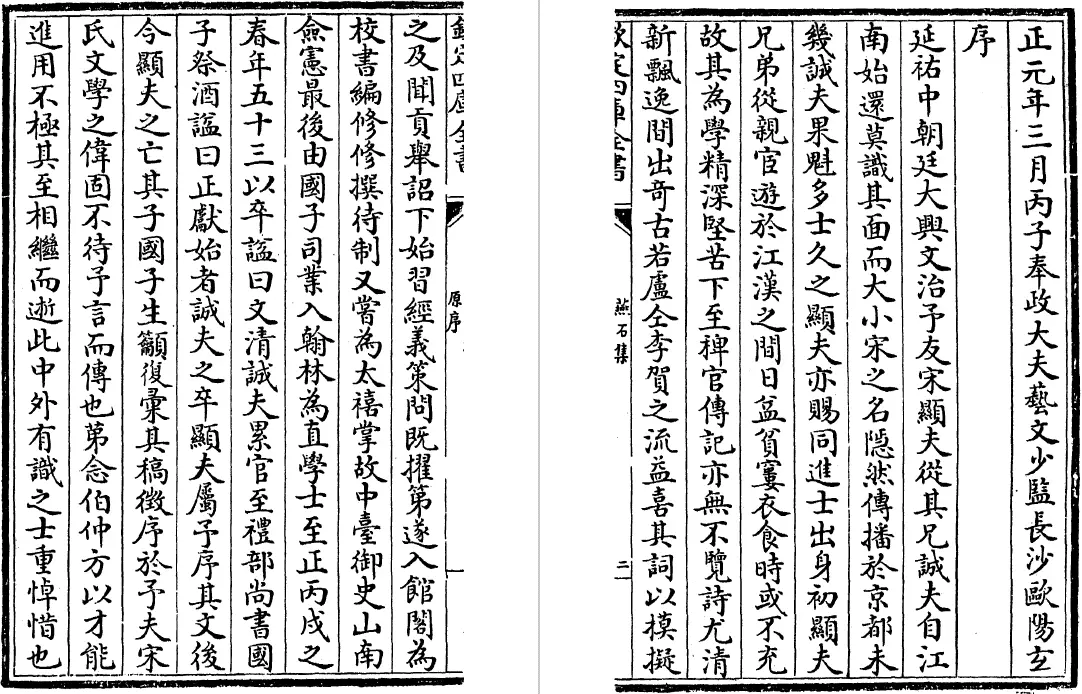 正元年三月丙子奉政大夫藝文少監長沙歐陽玄
序
延祐中朝廷大興文治予友宋顯夫從其兄誠夫自江
南始還莫識其面而大小宋之名隠然傳播於京都未
幾誠夫果魁多士久之顯夫亦賜同進士出身初顯夫
兄弟從親宦遊於江漢之間日益貧窶衣食時或不充
故其為學精深堅苦下至稗官傳記亦無不覽詩尤清
新飄逸間出奇古若盧仝李賀之流益喜其詞以模擬
欽定四庫全書
燕石集
二
欽定四庫全書
原序
之及聞貢舉詔下始習經義策問既擢第遂入館閣為
校書編修修撰待制又嘗為太禧掌故中臺御史山南
僉憲最後由國子司業入翰林為直學士至正丙戌之
春年五十三以卒諡曰文清誠夫累官至禮部尚書國
子祭酒諡曰正獻始者誠夫之卒顯夫屬予序其文後
今顯夫之亡其子國子生籲復彚其稿徵序於予夫宋
氏文學之偉固不待予言而傳也第念伯仲方以才能
進用不極其至相繼而逝此中外有識之士重悼惜也